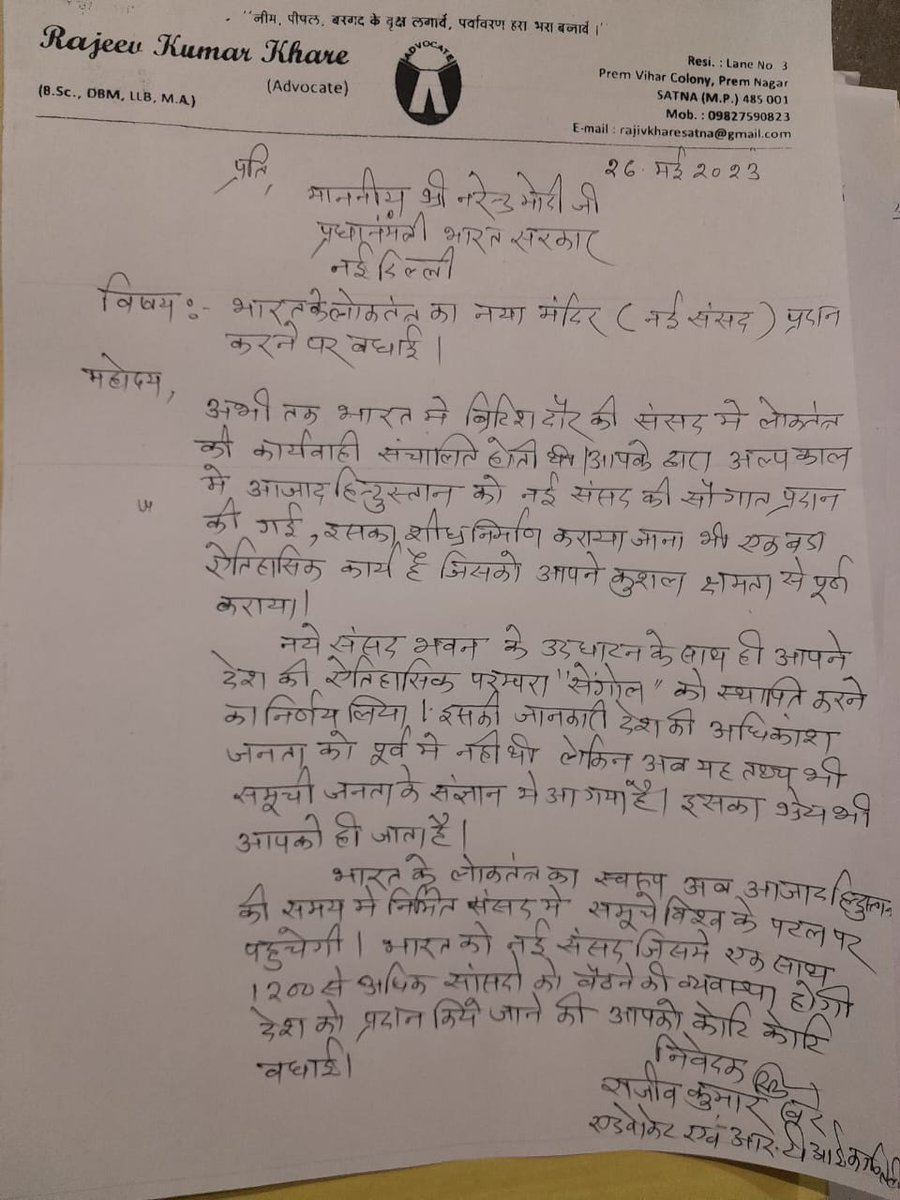 "नीम, पीपल, बरगद के वृक्ष लगावें, पर्यावरण हरा भरा बनावें ।"
Rajeev Kumar Khare
(Advocate)
(B.Sc., DBM, LLB, M.A.)
ADVOCATE
Resi. : Lane No 3
Prem Vihar Colony, Prem Nagar
SATNA (M.P.) 485 001
Mob. : 09827590823
E-mail : rajivkharesatna@gmail.com
26. मई 2023
प्रति,
माननीय श्री नरेन्द्र मोदी जी
प्रधानमंत्री भारत सरकार
नई दिल्ली
विषय :- भारत के लोकतंत्र का नया मंदिर ( नई संसद ) प्रदान
करने पर बधाई ।
महोदय,
अभी तक भारत मे ब्रिटिश दौर की संसद मे लोकतंत्र
की कार्यवाही संचालित होती थी । आपके द्वारा अल्पकाल
मे आजाद हिन्दुस्तान को नई संसद की सौगात प्रदान
की गई , इसका शीघ्र निर्माण कराया जाना भी एक बडा
ऐतिहासिक कार्य है जिसको आपने कुशल क्षमता से पूर्ण
कराया ।
नये संसद भवन के उदघाटन के साथ ही आपने
देश की ऐतिहासिक परम्परा "सेंगोल" को स्थापित करने
का निर्णय लिया । इसकी जानकारी देश की अधिकांश
जनता को पूर्व मे नही थी लेकिन अब यह तथ्य भी
समूची जनता के संज्ञान मे आ गया है । इसका श्रेय भी
आपको ही जाता है ।
भारत के लोकतंत्र का स्वरूप अब आजाद हिन्दुस्तान
की समय मे निर्मित संसद मे समूचे विश्व के पटल पर
पहुचेगी । भारत को नई संसद जिसमे एक साथ
1200 से अधिक सांसदो को बैठने की व्यवस्था होगी
देश को प्रदान किये जाने की आपको कोटि कोटि
बधाई ।
निवेदक
राजीव कुमार खरे
एडवोकेट एवं आर.टी आई